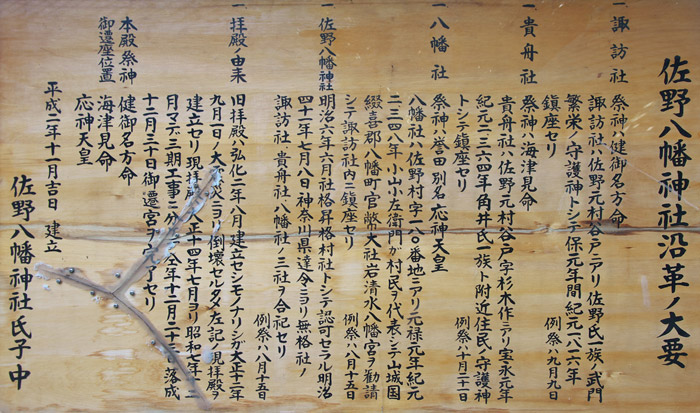 佐野八幡神社沿革ノ大要
一 諏訪社 祭神ハ健御名方命
諏訪社ハ佐野元村谷戸ニアリ佐野氏一族ノ武門
繁栄ノ守護神トシテ保元年間紀元一八一六年
鎮座セリ 例祭ハ九月九日
一 貴舟社 祭神ハ海津見命
貴舟社ハ佐野元村谷戸字杉木作ニアリ宝永元年
紀元二三六四年角井氏一族ト附近住民ノ守護神
トシテ鎮座セリ 例祭ハ十月二十一日
一 八幡社 祭神ハ誉田別名応神天皇
八幡社ハ佐野村字一八〇番地ニアリ元禄元年紀元
二三四八年小山小左衛門が村民ヲ代表シテ山城国
綴喜郡八幡町官幣大社岩清水八幡宮ヲ勧請
シテ諏訪社内ニ鎮座セリ 例祭ハ八月十五日
一 佐野八幡神社 明治六年六月社格昇格村社トシテ認可セラル明治
四十一年七月八日神奈川県達令ニヨリ無格社ノ
諏訪社 貴舟社 八幡社ノ三社ヲ合祀セリ
例祭ハ八月十五日
一 拝殿ノ由来 旧拝殿ハ弘化二年八月建立センモノナリシガ大正十二年
九月一日ノ大震災ニヨリ倒壊セルタメ左記ノ現拝殿ヲ
建立セリ現拝殿ハ大正十四年七月ヨリ昭和七年十二
月マデ三期工事ニ分チ仝年十二月二十二日落成
十二月三十日御遷宮ヲ セリ
本殿祭神 健御名方命
御遷座位置 海津見命
応神天皇
平成二年十一月吉日 建立
佐野八幡神社氏子中